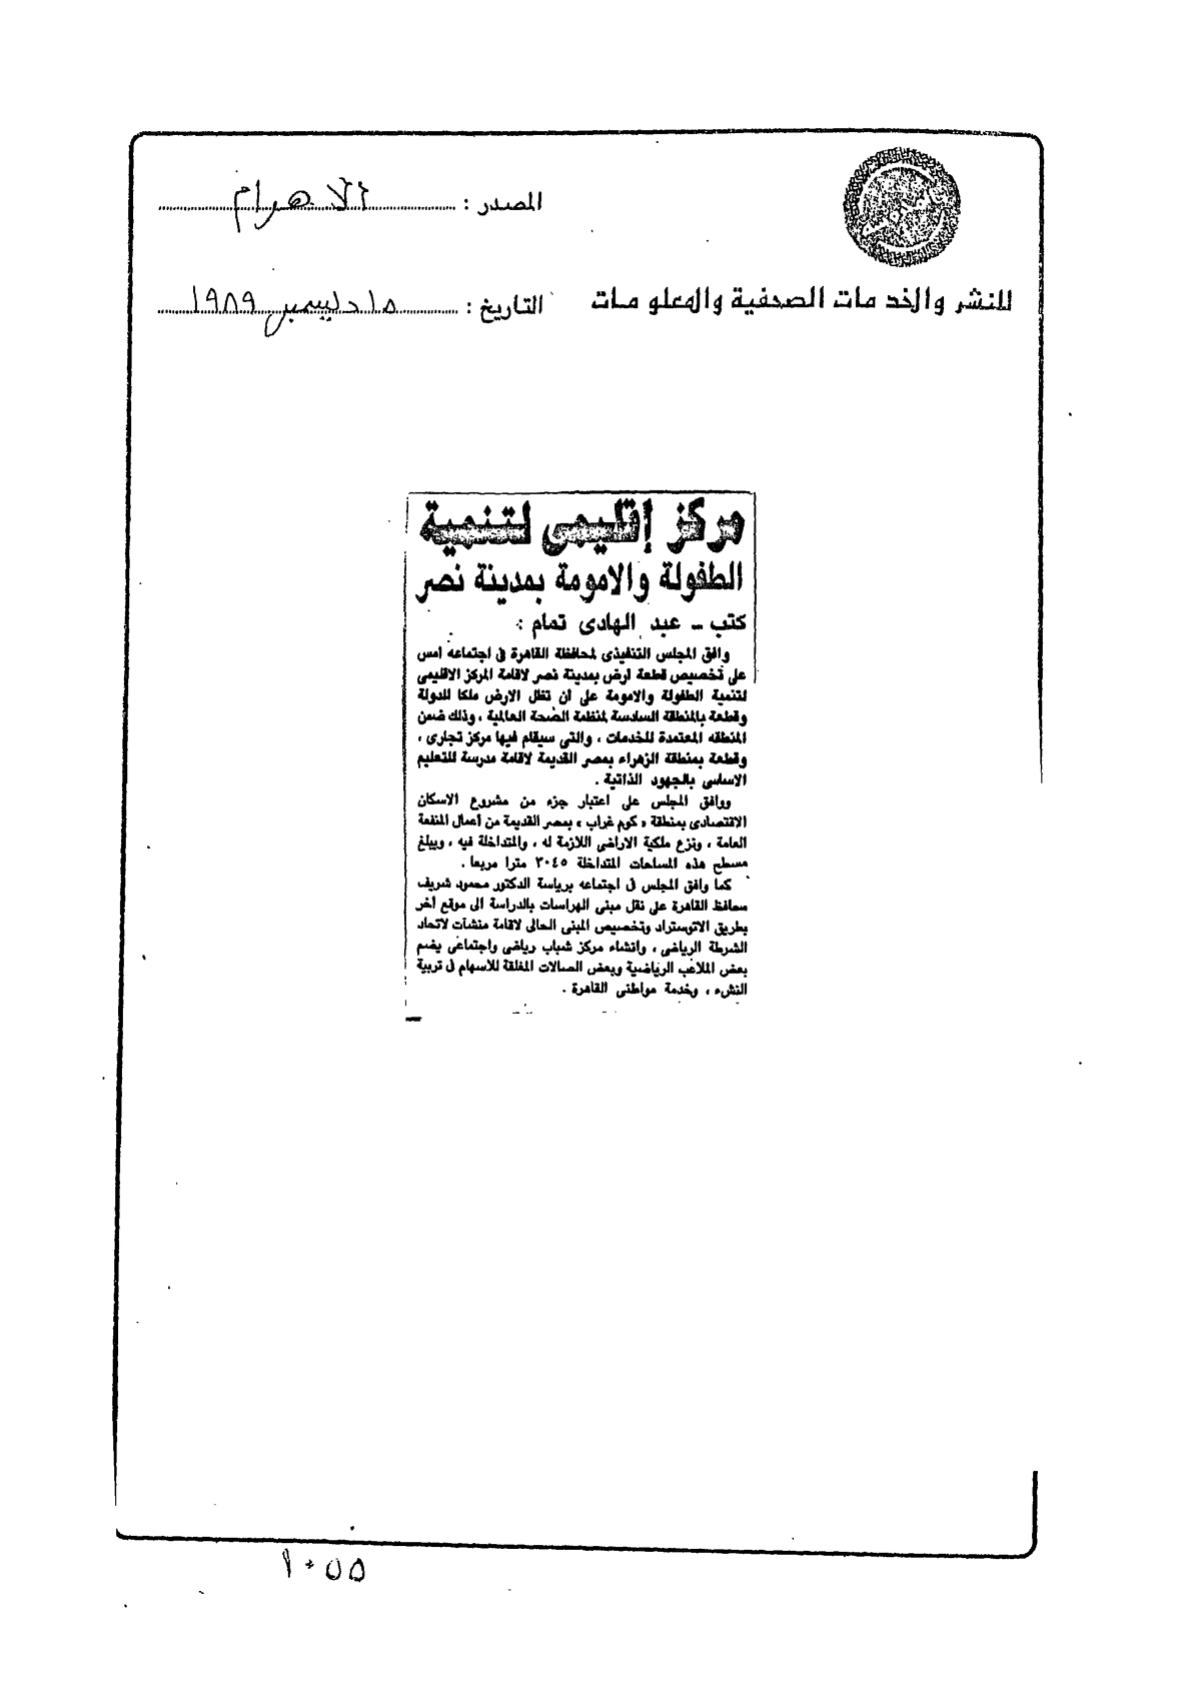 المصدر : الاهرام
للنشر والخدمات الصحفية والمعلومات
التاريخ : ١٥ ديسمبر ١٩٨٩
مركز إقليمى لتنمية
الطفولة والامومة بمدينة نصر
كتب ــ عبد الهادى تمام :
وافق المجلس التنفيذى لمحافظة القاهرة فى اجتماعه امس
على تخصيص قطعة ارض بمدينة نصر لاقامة المركز الاقليمى
لتنمية الطفولة والامومة على ان تظل الارض ملكا للدولة
وقطعة بالمنطقة السادسة لمنظمة الصحة العالمية ، وذلك ضمن
المنطقه المعتمدة للخدمات ، والتى سيقام فيها مركز تجارى ،
وقطعة بمنطقة الزهراء بمصر القديمة لاقامة مدرسة للتعليم
الاساسى بالجهود الذاتية .
ووافق المجلس على اعتبار جزء من مشروع الاسكان
الاقتصادى بمنطقة « كوم غراب » بمصر القديمة من أعمال المنفعة
العامة ، ونزع ملكية الاراضى اللازمة له ، والمتداخلة فيه ، ويبلغ
مسطح هذه المساحات المتداخلة ٣٠٤٥ مترا مربعا .
كما وافق المجلس فى اجتماعه برياسة الدكتور محمود شريف
محافظ القاهرة على نقل مبنى الهراسات بالدراسة الى موقع آخر
بطريق الاتوستراد وتخصيص المبنى الحالى لاقامة منشآت لاتحاد
الشرطة الرياضى ، وانشاء مركز شباب رياضى واجتماعى يضم
بعض الملاعب الرياضية وبعض الصالات المغلقة للاسهام فى تربية
النشء ، وخدمة مواطنى القاهرة .